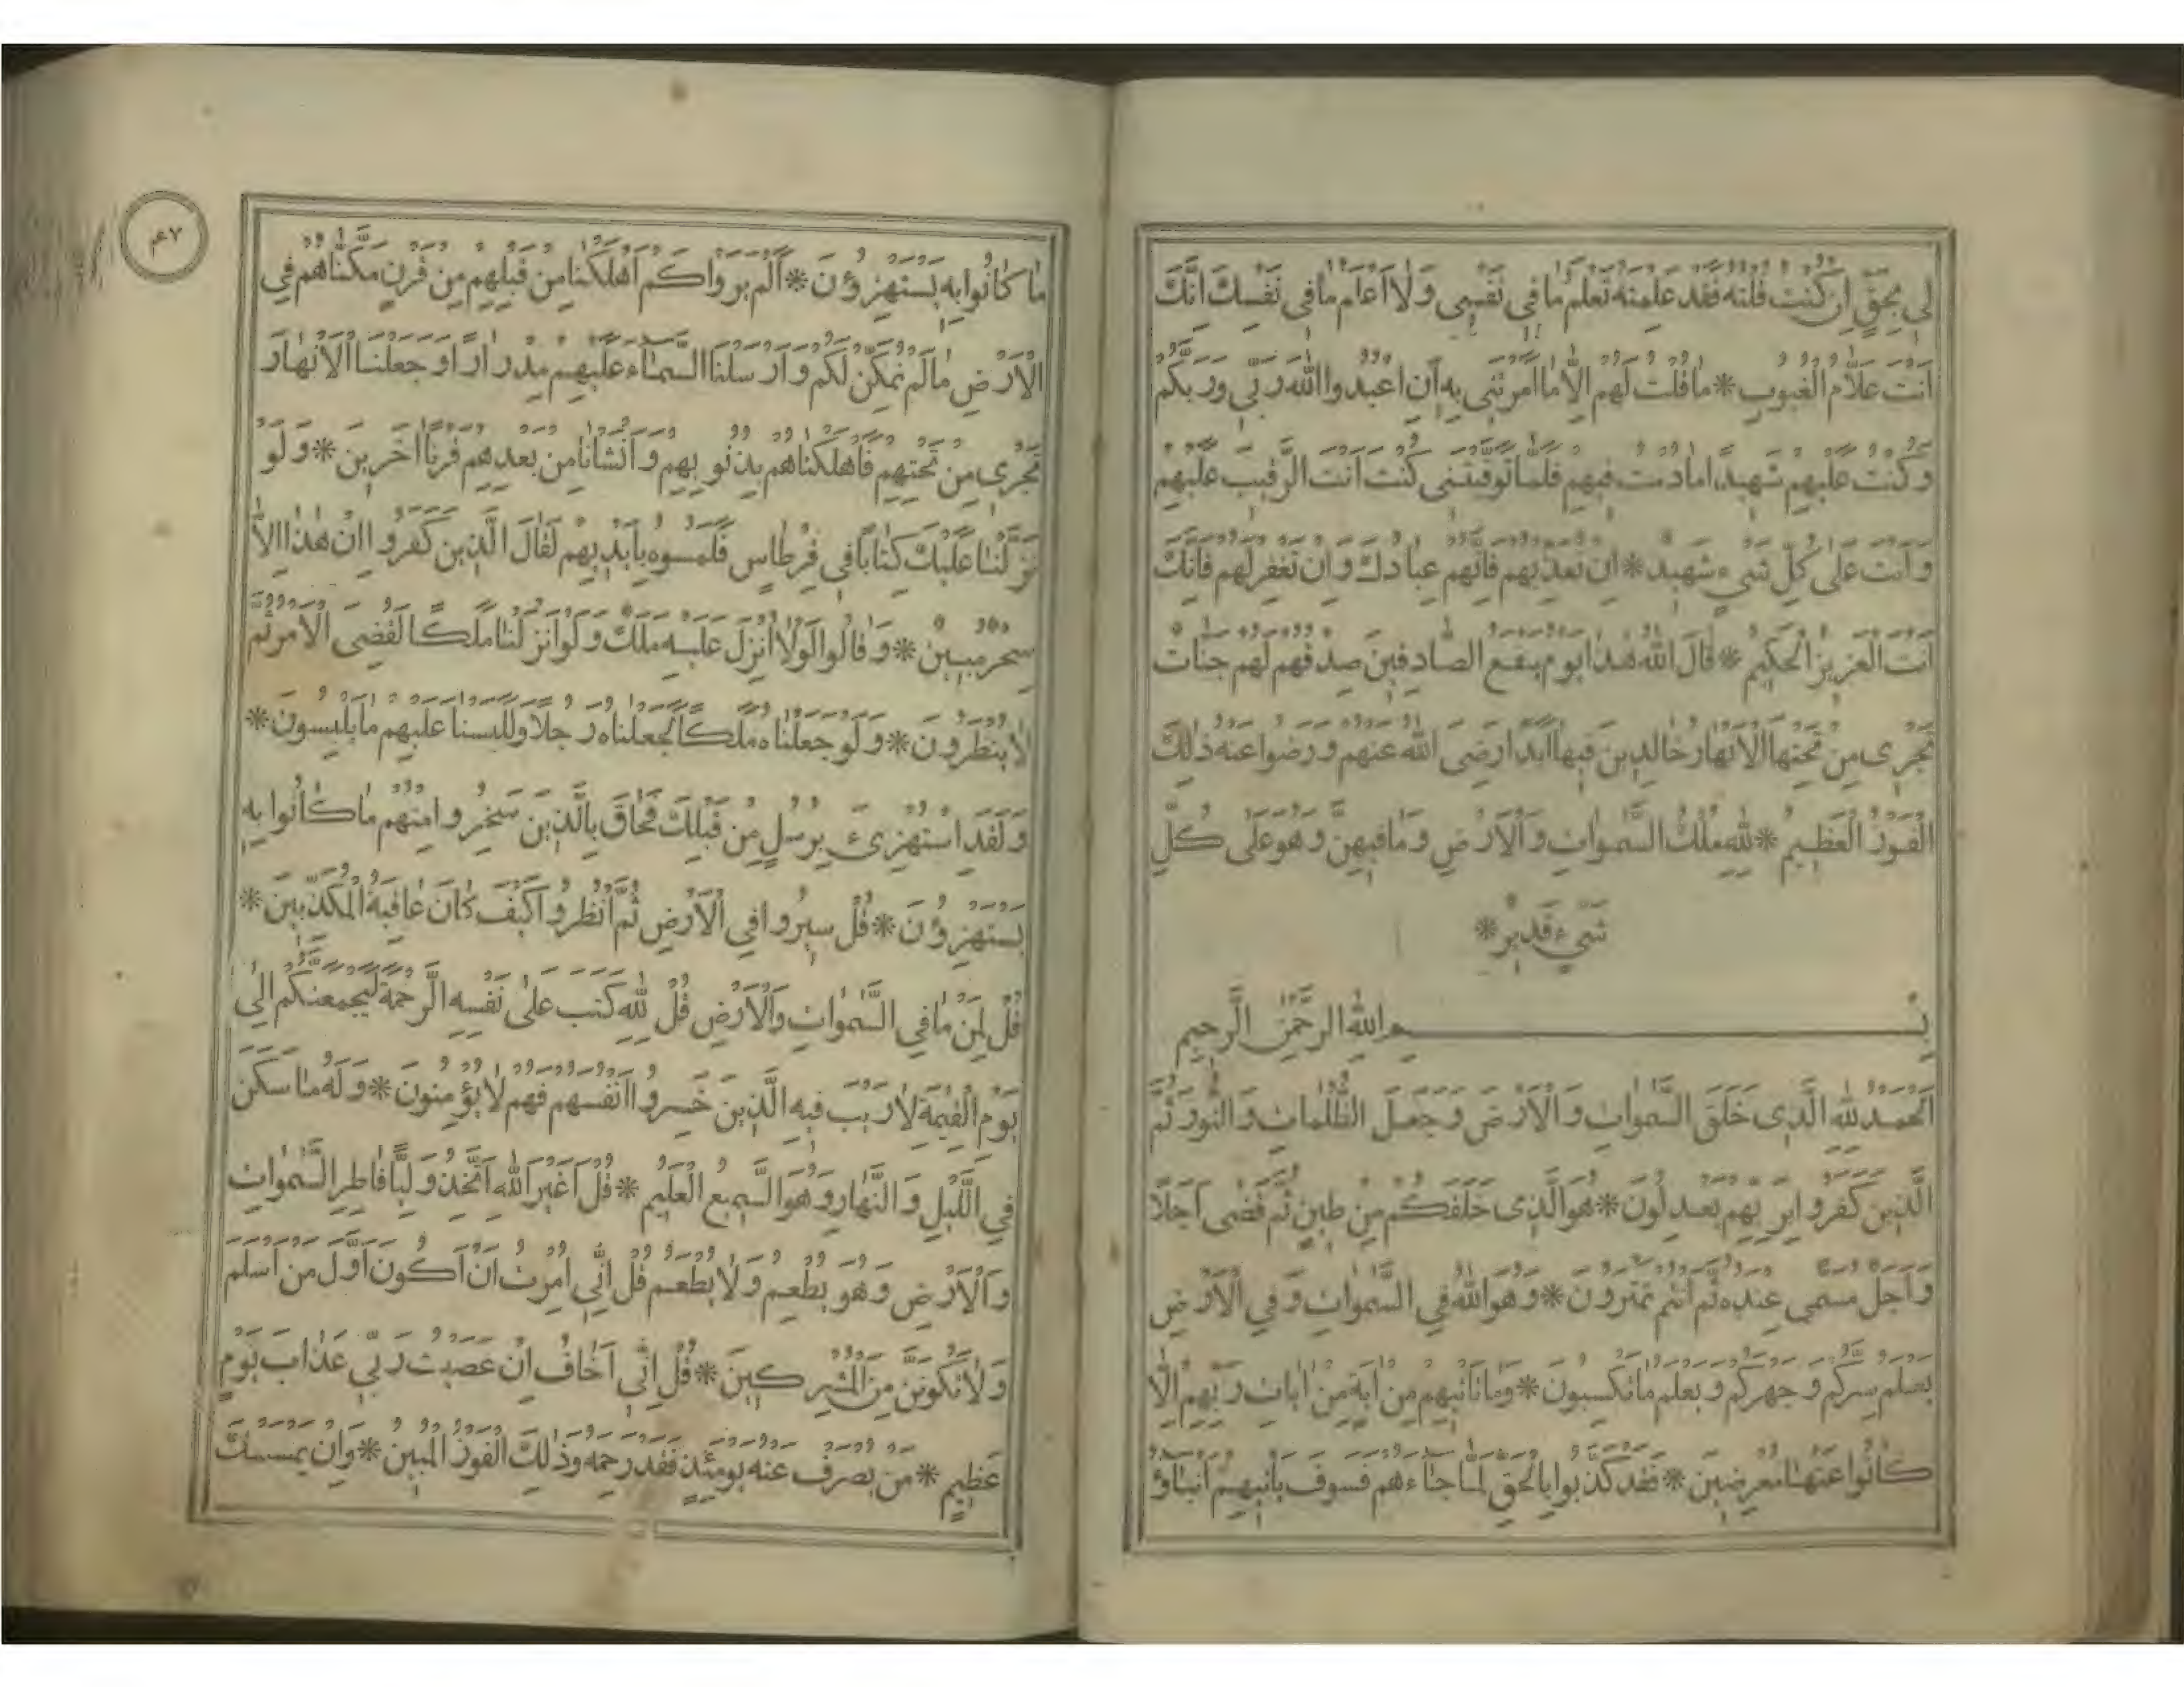 لِى بِحَقٍّ اِنْ كُنْتُ قُلْتُهُ فَقَدْ عَلِمْتَهُ تَعْلَمُ مَا فِى نَفْسِى وَلَا اَعْلَمُ مَا فِى نَفْسِكَ اِنَّكَ
اَنْتَ عَلَّامُ الْغُيُوبِ * مَا قُلْتُ لَهُمْ اِلَّا مَا اَمَرْتَنِى بِهِ اَنِ اعْبُدُوا اللّٰهَ رَبِّى وَرَبَّكُمْ
وَكُنْتُ عَلَيْهِمْ شَهِيدًا مَا دُمْتُ فِيهِمْ فَلَمَّا تَوَفَّيْتَنِى كُنْتَ اَنْتَ الرَّقِيبَ عَلَيْهِمْ
وَاَنْتَ عَلٰى كُلِّ شَىْءٍ شَهِيدٌ * اِنْ تُعَذِّبْهُمْ فَاِنَّهُمْ عِبَادُكَ وَاِنْ تَغْفِرْ لَهُمْ فَاِنَّكَ
اَنْتَ الْعَزِيزُ الْحَكِيمُ * قَالَ اللّٰهُ هٰذَا يَوْمُ يَنْفَعُ الصَّادِقِينَ صِدْقُهُمْ لَهُمْ جَنَّاتٌ
تَجْرِى مِنْ تَحْتِهَا الْاَنْهَارُ خَالِدِينَ فِيهَا اَبَدًا رَضِىَ اللّٰهُ عَنْهُمْ وَرَضُوا عَنْهُ ذٰلِكَ
الْفَوْزُ الْعَظِيمُ * لِلّٰهِ مُلْكُ السَّمٰوَاتِ وَالْاَرْضِ وَمَا فِيهِنَّ وَهُوَ عَلٰى كُلِّ
شَىْءٍ قَدِيرٌ *
بِسْمِ اللّٰهِ الرَّحْمٰنِ الرَّحِيمِ
اَلْحَمْدُ لِلّٰهِ الَّذِى خَلَقَ السَّمٰوَاتِ وَالْاَرْضَ وَجَعَلَ الظُّلُمَاتِ وَالنُّورَ ثُمَّ
الَّذِينَ كَفَرُوا بِرَبِّهِمْ يَعْدِلُونَ * هُوَ الَّذِى خَلَقَكُمْ مِنْ طِينٍ ثُمَّ قَضٰى اَجَلًا
وَاَجَلٌ مُسَمًّى عِنْدَهُ ثُمَّ اَنْتُمْ تَمْتَرُونَ * وَهُوَ اللّٰهُ فِى السَّمٰوَاتِ وَفِى الْاَرْضِ
يَعْلَمُ سِرَّكُمْ وَجَهْرَكُمْ وَيَعْلَمُ مَا تَكْسِبُونَ * وَمَا تَأْتِيهِمْ مِنْ اٰيَةٍ مِنْ اٰيَاتِ رَبِّهِمْ اِلَّا
كَانُوا عَنْهَا مُعْرِضِينَ * فَقَدْ كَذَّبُوا بِالْحَقِّ لَمَّا جَاءَهُمْ فَسَوْفَ يَأْتِيهِمْ اَنْبَاؤُ
مَا كَانُوا بِهِ يَسْتَهْزِؤُنَ * اَلَمْ يَرَوْا كَمْ اَهْلَكْنَا مِنْ قَبْلِهِمْ مِنْ قَرْنٍ مَكَّنَّاهُمْ فِى
الْاَرْضِ مَا لَمْ نُمَكِّنْ لَكُمْ وَاَرْسَلْنَا السَّمَاءَ عَلَيْهِمْ مِدْرَارًا وَجَعَلْنَا الْاَنْهَارَ
تَجْرِى مِنْ تَحْتِهِمْ فَاَهْلَكْنَاهُمْ بِذُنُوبِهِمْ وَاَنْشَأْنَا مِنْ بَعْدِهِمْ قَرْنًا اٰخَرِينَ * وَلَوْ
نَزَّلْنَا عَلَيْكَ كِتَابًا فِى قِرْطَاسٍ فَلَمَسُوهُ بِاَيْدِيهِمْ لَقَالَ الَّذِينَ كَفَرُوا اِنْ هٰذَا اِلَّا
سِحْرٌ مُبِينٌ * وَقَالُوا لَوْلَا اُنْزِلَ عَلَيْهِ مَلَكٌ وَلَوْ اَنْزَلْنَا مَلَكًا لَقُضِىَ الْاَمْرُ ثُمَّ
لَا يُنْظَرُونَ * وَلَوْ جَعَلْنَاهُ مَلَكًا لَجَعَلْنَاهُ رَجُلًا وَلَلَبَسْنَا عَلَيْهِمْ مَا يَلْبِسُونَ *
وَلَقَدِ اسْتُهْزِئَ بِرُسُلٍ مِنْ قَبْلِكَ فَحَاقَ بِالَّذِينَ سَخِرُوا مِنْهُمْ مَا كَانُوا بِهِ
يَسْتَهْزِؤُنَ * قُلْ سِيرُوا فِى الْاَرْضِ ثُمَّ انْظُرُوا كَيْفَ كَانَ عَاقِبَةُ الْمُكَذِّبِينَ *
قُلْ لِمَنْ مَا فِى السَّمٰوَاتِ وَالْاَرْضِ قُلْ لِلّٰهِ كَتَبَ عَلٰى نَفْسِهِ الرَّحْمَةَ لَيَجْمَعَنَّكُمْ اِلٰى
يَوْمِ الْقِيٰمَةِ لَا رَيْبَ فِيهِ الَّذِينَ خَسِرُوا اَنْفُسَهُمْ فَهُمْ لَا يُؤْمِنُونَ * وَلَهُ مَا سَكَنَ
فِى اللَّيْلِ وَالنَّهَارِ وَهُوَ السَّمِيعُ الْعَلِيمُ * قُلْ اَغَيْرَ اللّٰهِ اَتَّخِذُ وَلِيًّا فَاطِرِ السَّمٰوَاتِ
وَالْاَرْضِ وَهُوَ يُطْعِمُ وَلَا يُطْعَمُ قُلْ اِنِّى اُمِرْتُ اَنْ اَكُونَ اَوَّلَ مَنْ اَسْلَمَ
وَلَا تَكُونَنَّ مِنَ الْمُشْرِكِينَ * قُلْ اِنِّى اَخَافُ اِنْ عَصَيْتُ رَبِّى عَذَابَ يَوْمٍ
عَظِيمٍ * مَنْ يُصْرَفْ عَنْهُ يَوْمَئِذٍ فَقَدْ رَحِمَهُ وَذٰلِكَ الْفَوْزُ الْمُبِينُ * وَاِنْ يَمْسَسْكَ